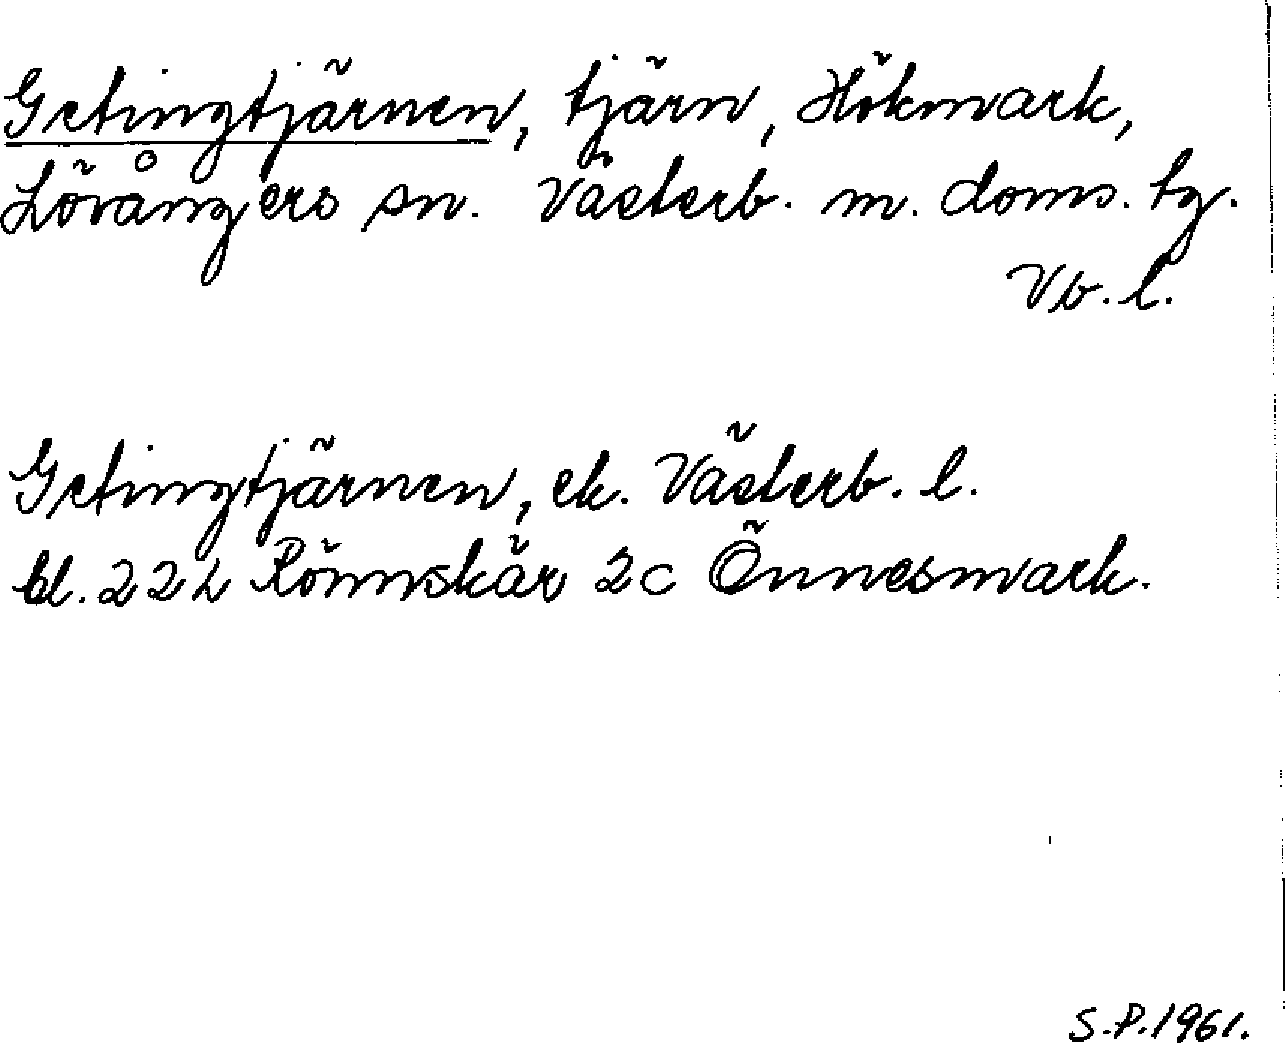 Getingtjärnen, tjärn, Hökmark,
Lövångers sn. Västerb. m. doms. tg.
Vb. l.
Getingtjärnen, ek. Västerb. l.
bl. 22L Rönnskär 2c Önnesmark.
S.P. 1961.